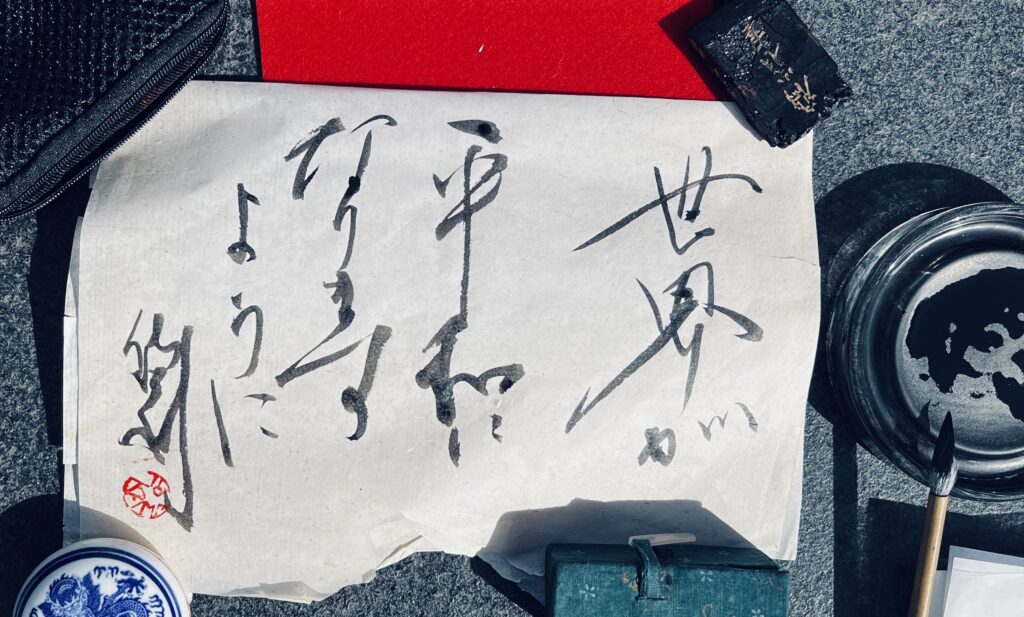 世界が
平和に
なります
ように
劉